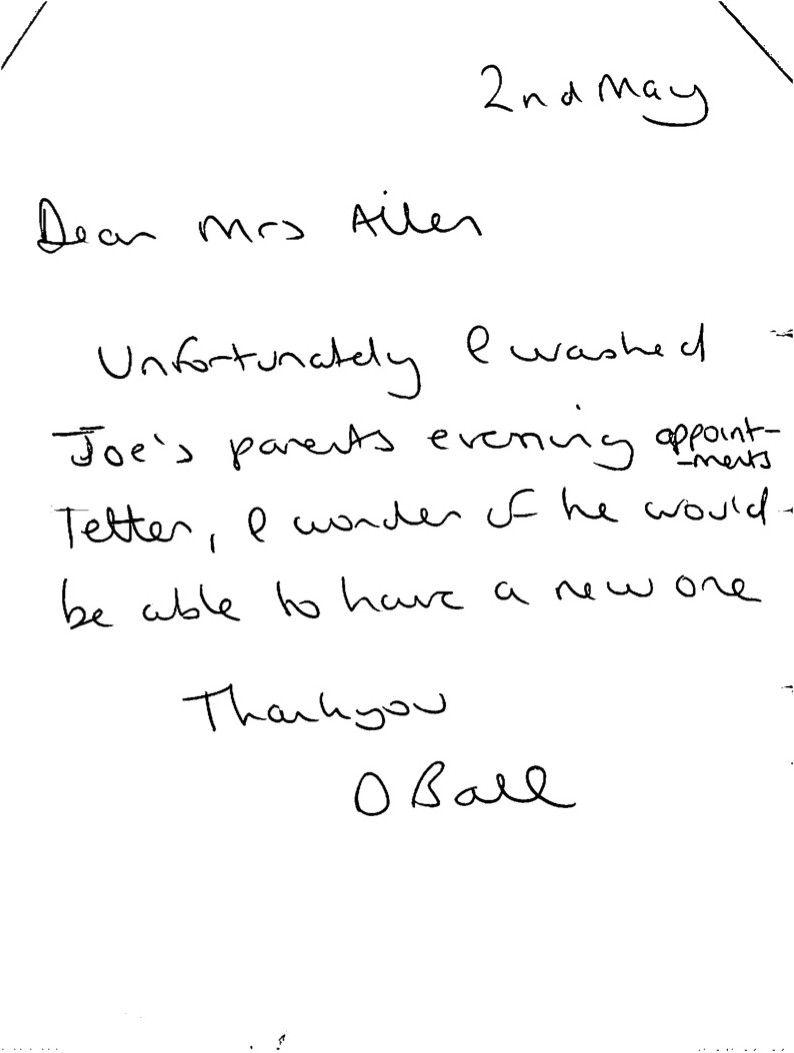 2nd May
Dear Mrs Allen
Unfortunately I washed
Joe's parents evening appoint-
-ments
letter, I wonder if he would
be able to have a new one
Thankyou
O Ball